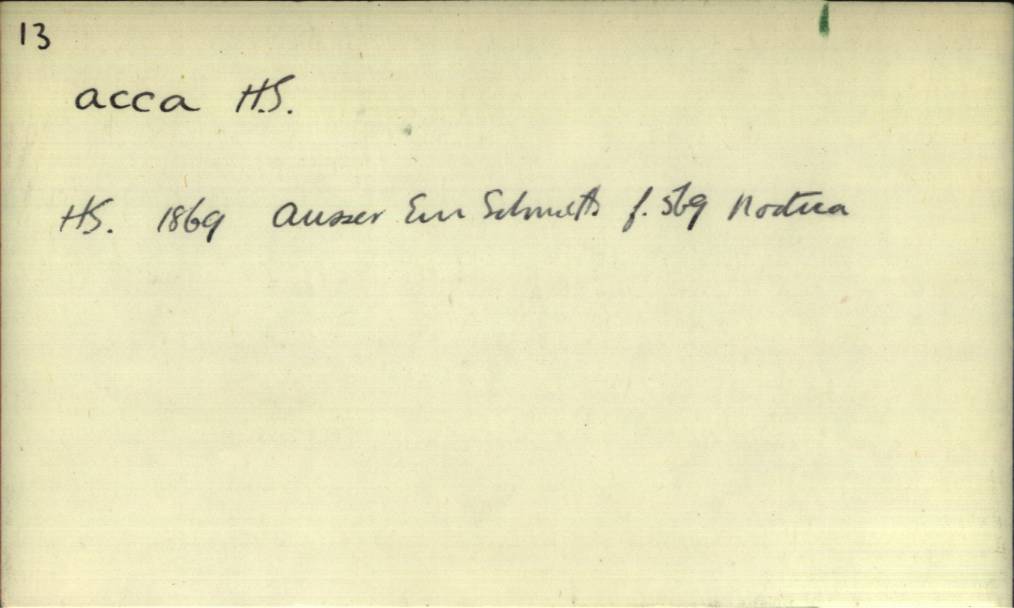 13
acca H.S.
HS. 1869 Ausser Eur Schmett f. 569 Noctua